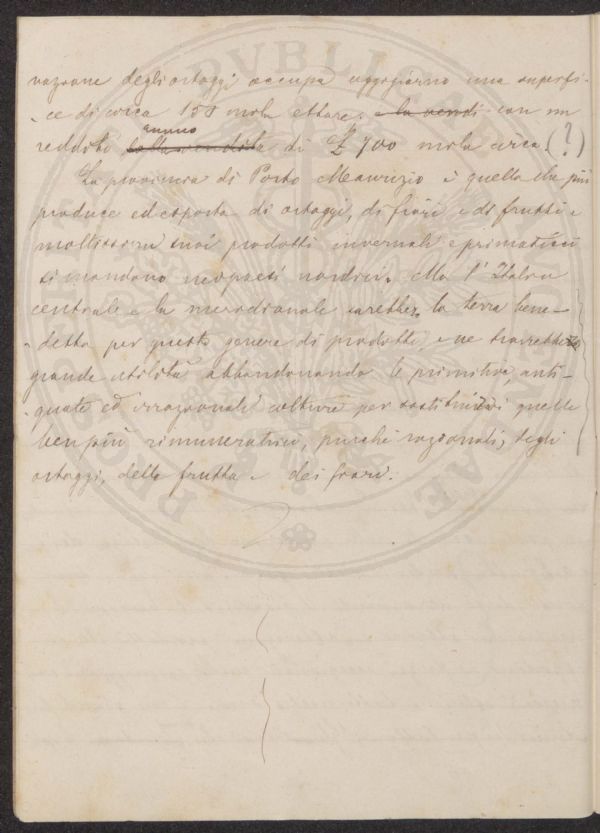 vazione degli ortaggi occupa oggigiorno una superfi-
ce di circa 150 mila ettare, e la vendi con un
annuo
reddito di £ 700 mila circa. (?)
La provincia di Porto Maurizio è quella che più
produce ed esporta di ortaggi, di fiori e di frutti e
moltissimi suoi prodotti invernali e primaticci
si mandano nei paesi nordici. Ma l'Italia
centrale e la meridionale sarebbe la terra bene-
detta per questo genere di prodotti, e ne trarrebbe
grande utilità abbandonando le primitive, anti-
quate ed irrazionali colture per sostituirvi quelle
ben più rimuneratrici, purché razionali, degli
ortaggi, delle frutta e dei fiori.
PVBLI